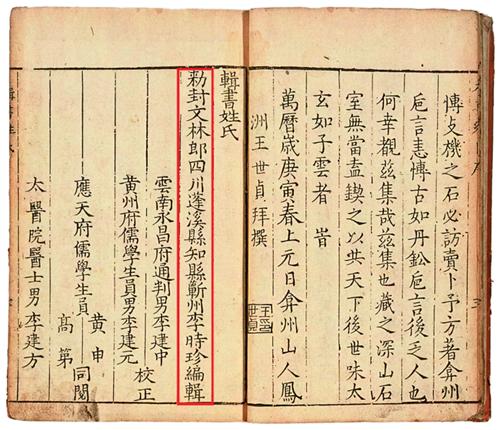 慱支機之石必訪賣卜予方著弇州
巵言恚慱古如丹鈆巵言後乏人也
何幸覩兹集哉兹集也藏之深山石
室無當盍鍥之以共天下後世味太
玄如子雲者 旹
萬曆歲庚寅春上元日弇州山人鳳
洲王世貞拜撰
輯書姓氏
勑封文林郎四川蓬溪縣知縣蘄州李時珍編輯
雲南永昌府通判男李建中
校正
黃州府儒學生員男李建元
應天府儒學生員
黃申
高第
同閱
太醫院醫士男李建方